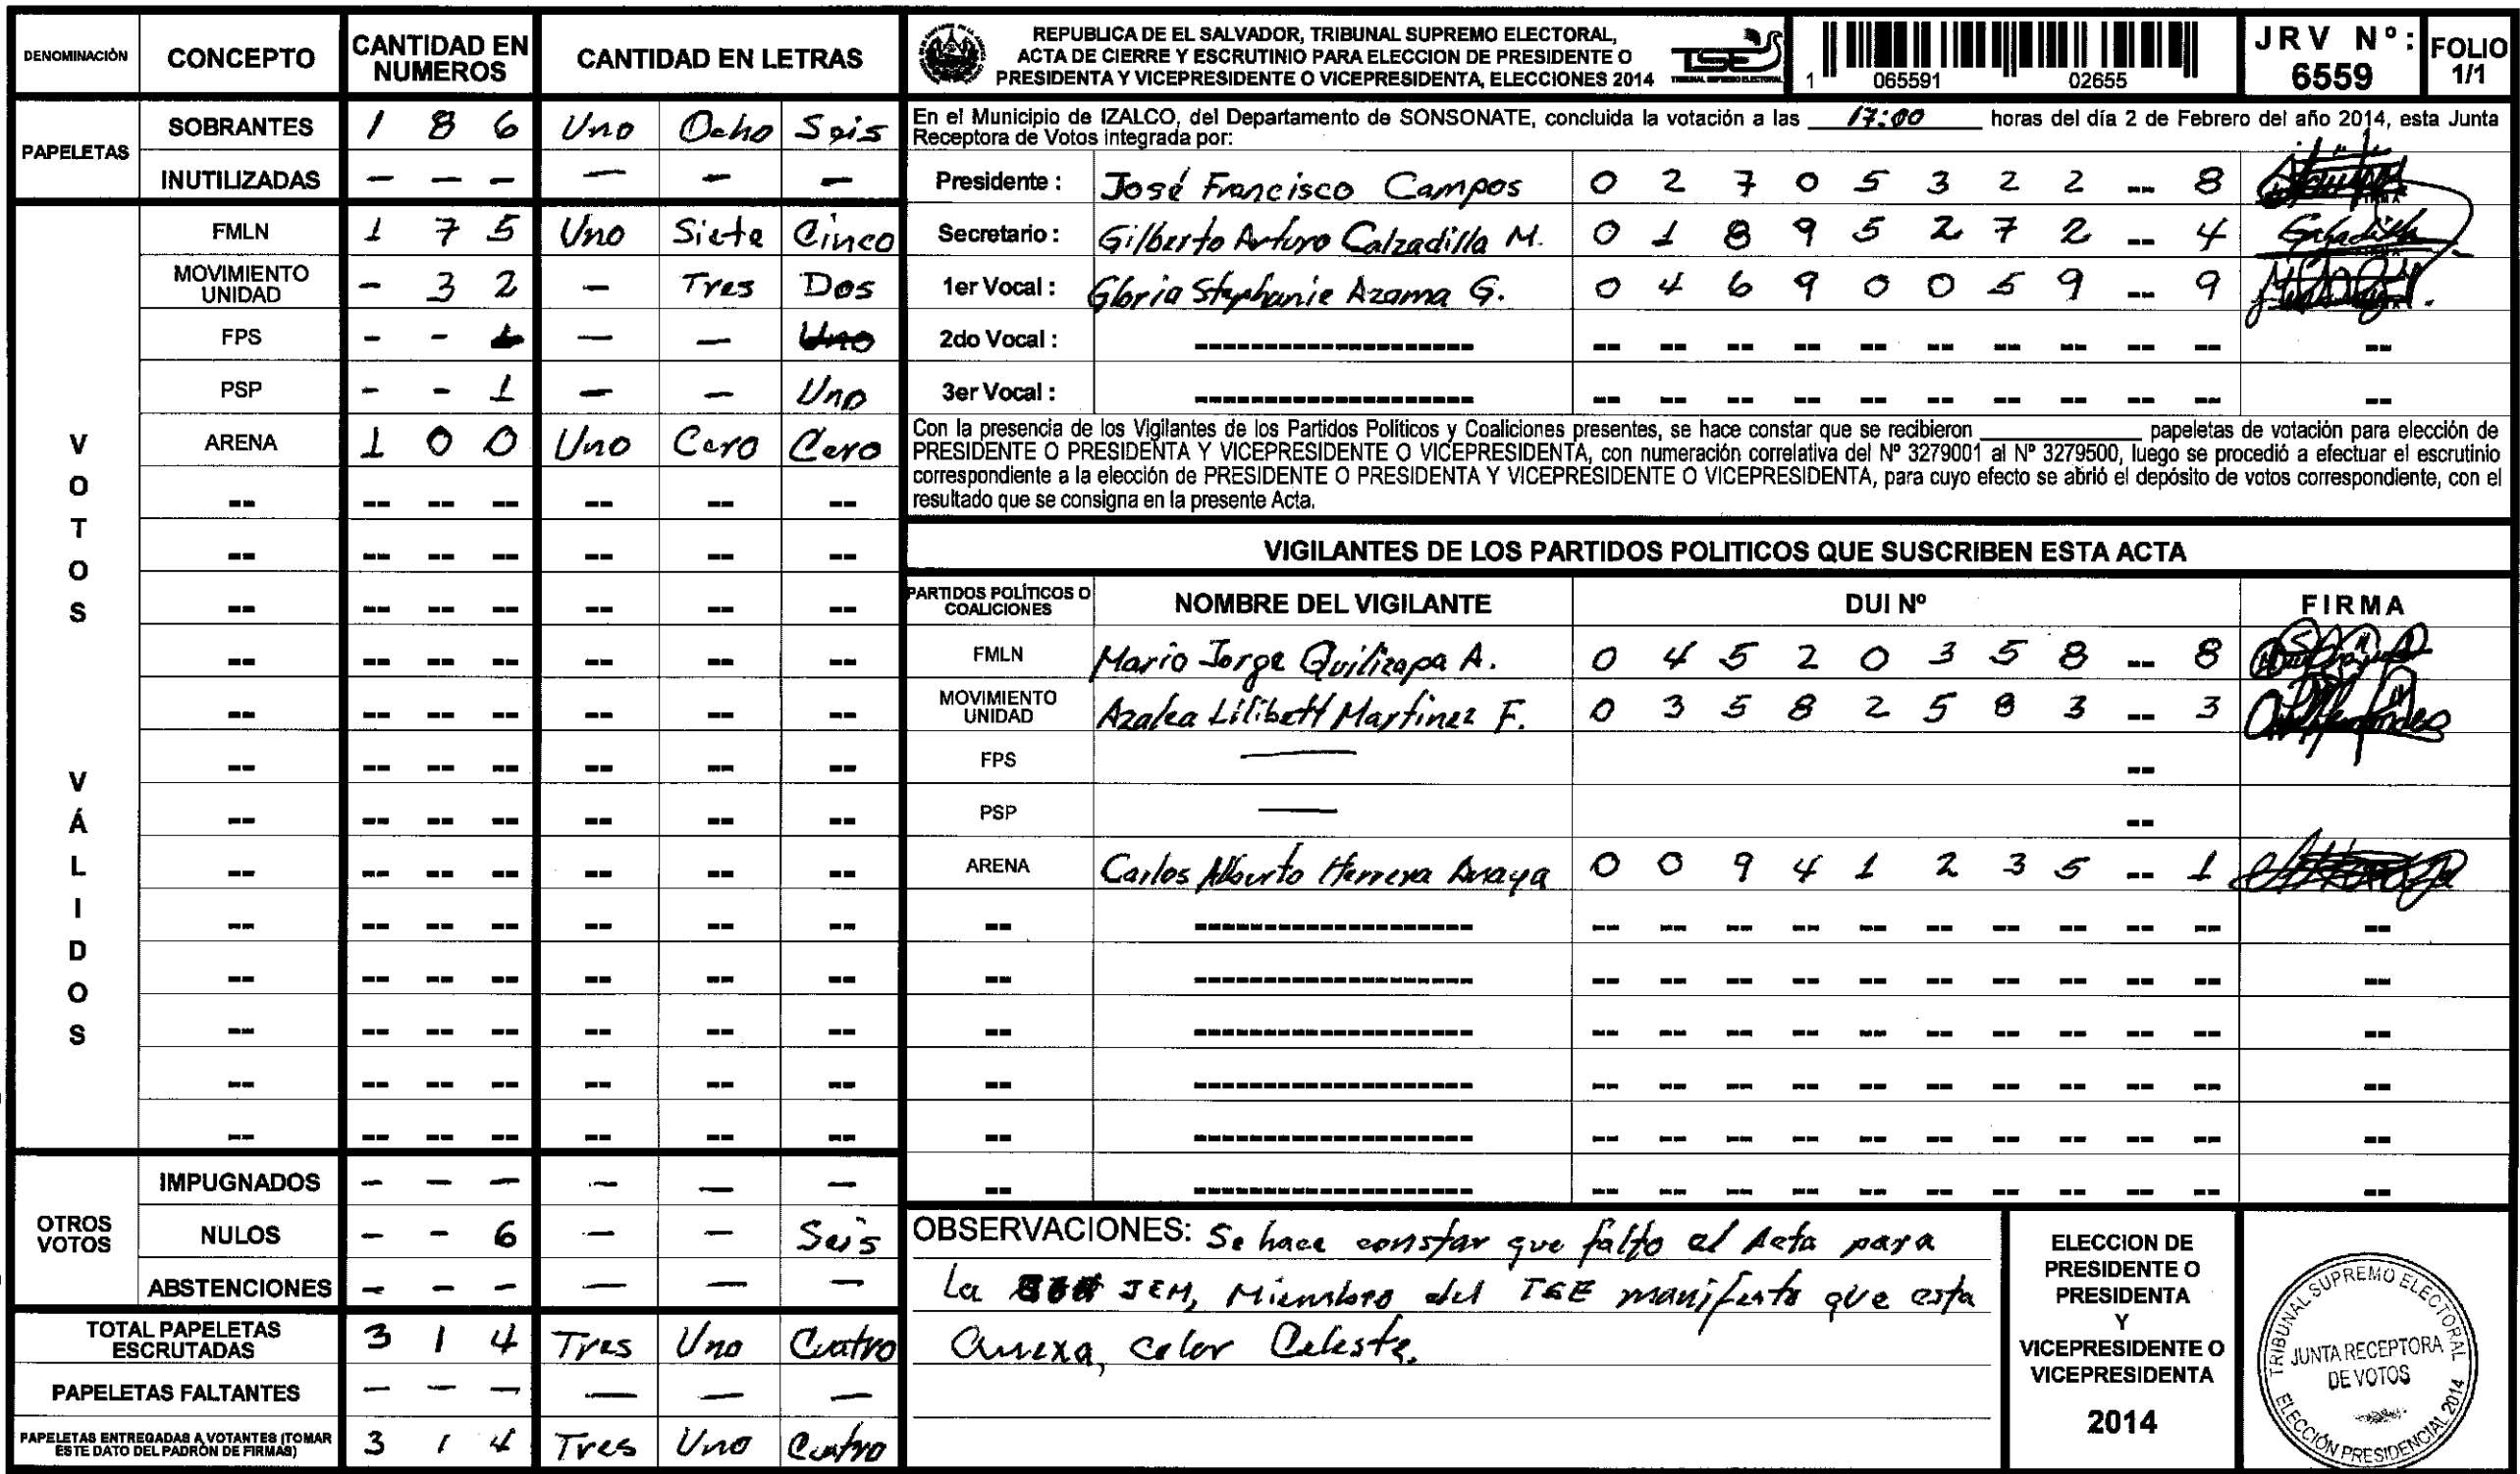 DENOMINACIÓN CONCEPTO CANTIDAD EN NUMEROS CANTIDAD EN LETRAS
PAPELETAS
SOBRANTES 1 8 6 Uno Ocho Seis
INUTILIZADAS - - - - - -
VOTOS VÁLIDOS
FMLN 1 7 5 Uno Siete Cinco
MOVIMIENTO UNIDAD - 3 2 - Tres Dos
FPS - - 1 - - Uno
PSP - - 1 - - Uno
ARENA 1 0 0 Uno Cero Cero
OTROS VOTOS
IMPUGNADOS - - - - - -
NULOS - - 6 - - Seis
ABSTENCIONES - - - - - -
TOTAL PAPELETAS ESCRUTADAS 3 1 4 Tres Uno Cuatro
PAPELETAS FALTANTES - - - - - -
PAPELETAS ENTREGADAS A VOTANTES (TOMAR ESTE DATO DEL PADRÓN DE FIRMAS) 3 1 4 Tres Uno Cuatro
REPUBLICA DE EL SALVADOR, TRIBUNAL SUPREMO ELECTORAL,
ACTA DE CIERRE Y ESCRUTINIO PARA ELECCION DE PRESIDENTE O
PRESIDENTA Y VICEPRESIDENTE O VICEPRESIDENTA, ELECCIONES 2014
TSE
TRIBUNAL SUPREMO ELECTORAL
1 065591 02655
JRV Nº: 6559
FOLIO 1/1
En el Municipio de IZALCO, del Departamento de SONSONATE, concluida la votación a las 17:00 horas del día 2 de Febrero del año 2014, esta Junta
Receptora de Votos integrada por:
Presidente : José Francisco Campos 0 2 7 0 5 3 2 2 -- 8
Secretario : Gilberto Arturo Calzadilla M. 0 1 8 9 5 2 7 2 -- 4
1er Vocal : Gloria Stephanie Azama G. 0 4 6 9 0 0 5 9 -- 9
2do Vocal :
3er Vocal :
Con la presencia de los Vigilantes de los Partidos Políticos y Coaliciones presentes, se hace constar que se recibieron ____ papeletas de votación para elección de
PRESIDENTE O PRESIDENTA Y VICEPRESIDENTE O VICEPRESIDENTA, con numeración correlativa del Nº 3279001 al Nº 3279500, luego se procedió a efectuar el escrutinio
correspondiente a la elección de PRESIDENTE O PRESIDENTA Y VICEPRESIDENTE O VICEPRESIDENTA, para cuyo efecto se abrió el depósito de votos correspondiente, con el
resultado que se consigna en la presente Acta.
VIGILANTES DE LOS PARTIDOS POLITICOS QUE SUSCRIBEN ESTA ACTA
PARTIDOS POLÍTICOS O COALICIONES NOMBRE DEL VIGILANTE DUI Nº FIRMA
FMLN Mario Jorge Quilizapa A. 0 4 5 2 0 3 5 8 -- 8
MOVIMIENTO UNIDAD Azalea Lilibett Martinez F. 0 3 5 8 2 5 8 3 -- 3
FPS --
PSP --
ARENA Carlos Alberto Herrera Anaya 0 0 9 4 1 2 3 5 -- 1
OBSERVACIONES: Se hace constar que falto el Acta para
La JEM, Miembro del TSE manifesto que esta
anexa, color Celeste.
ELECCION DE
PRESIDENTE O
PRESIDENTA
Y
VICEPRESIDENTE O
VICEPRESIDENTA
2014
TRIBUNAL SUPREMO ELECTORAL
JUNTA RECEPTORA
DE VOTOS
ELECCIÓN PRESIDENCIAL 2014